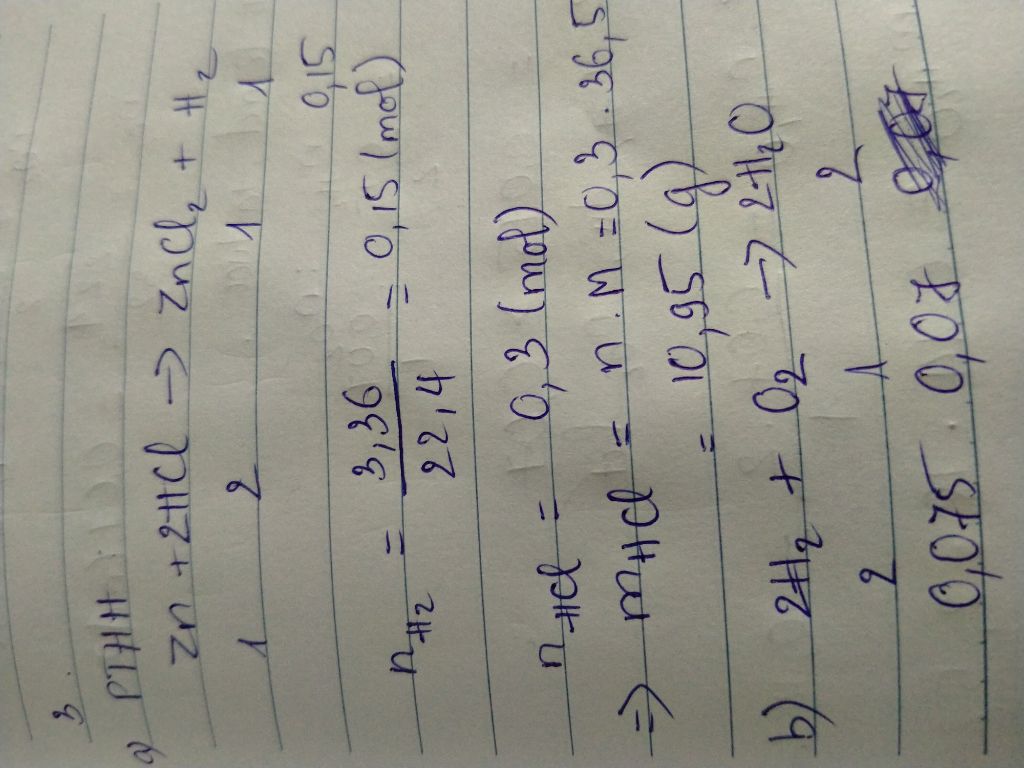 3.
a) PTHH:
Zn + 2HCl → ZnCl₂ + H₂
1 2 1 1
0,15
n_H₂ = 3,36 / 22,4 = 0,15 (mol)
n_HCl = 0,3 (mol)
=> m_HCl = n . M = 0,3 . 36,5
= 10,95 (g)
b) 2H₂ + O₂ → 2H₂O
2 1 2
0,075 0,07